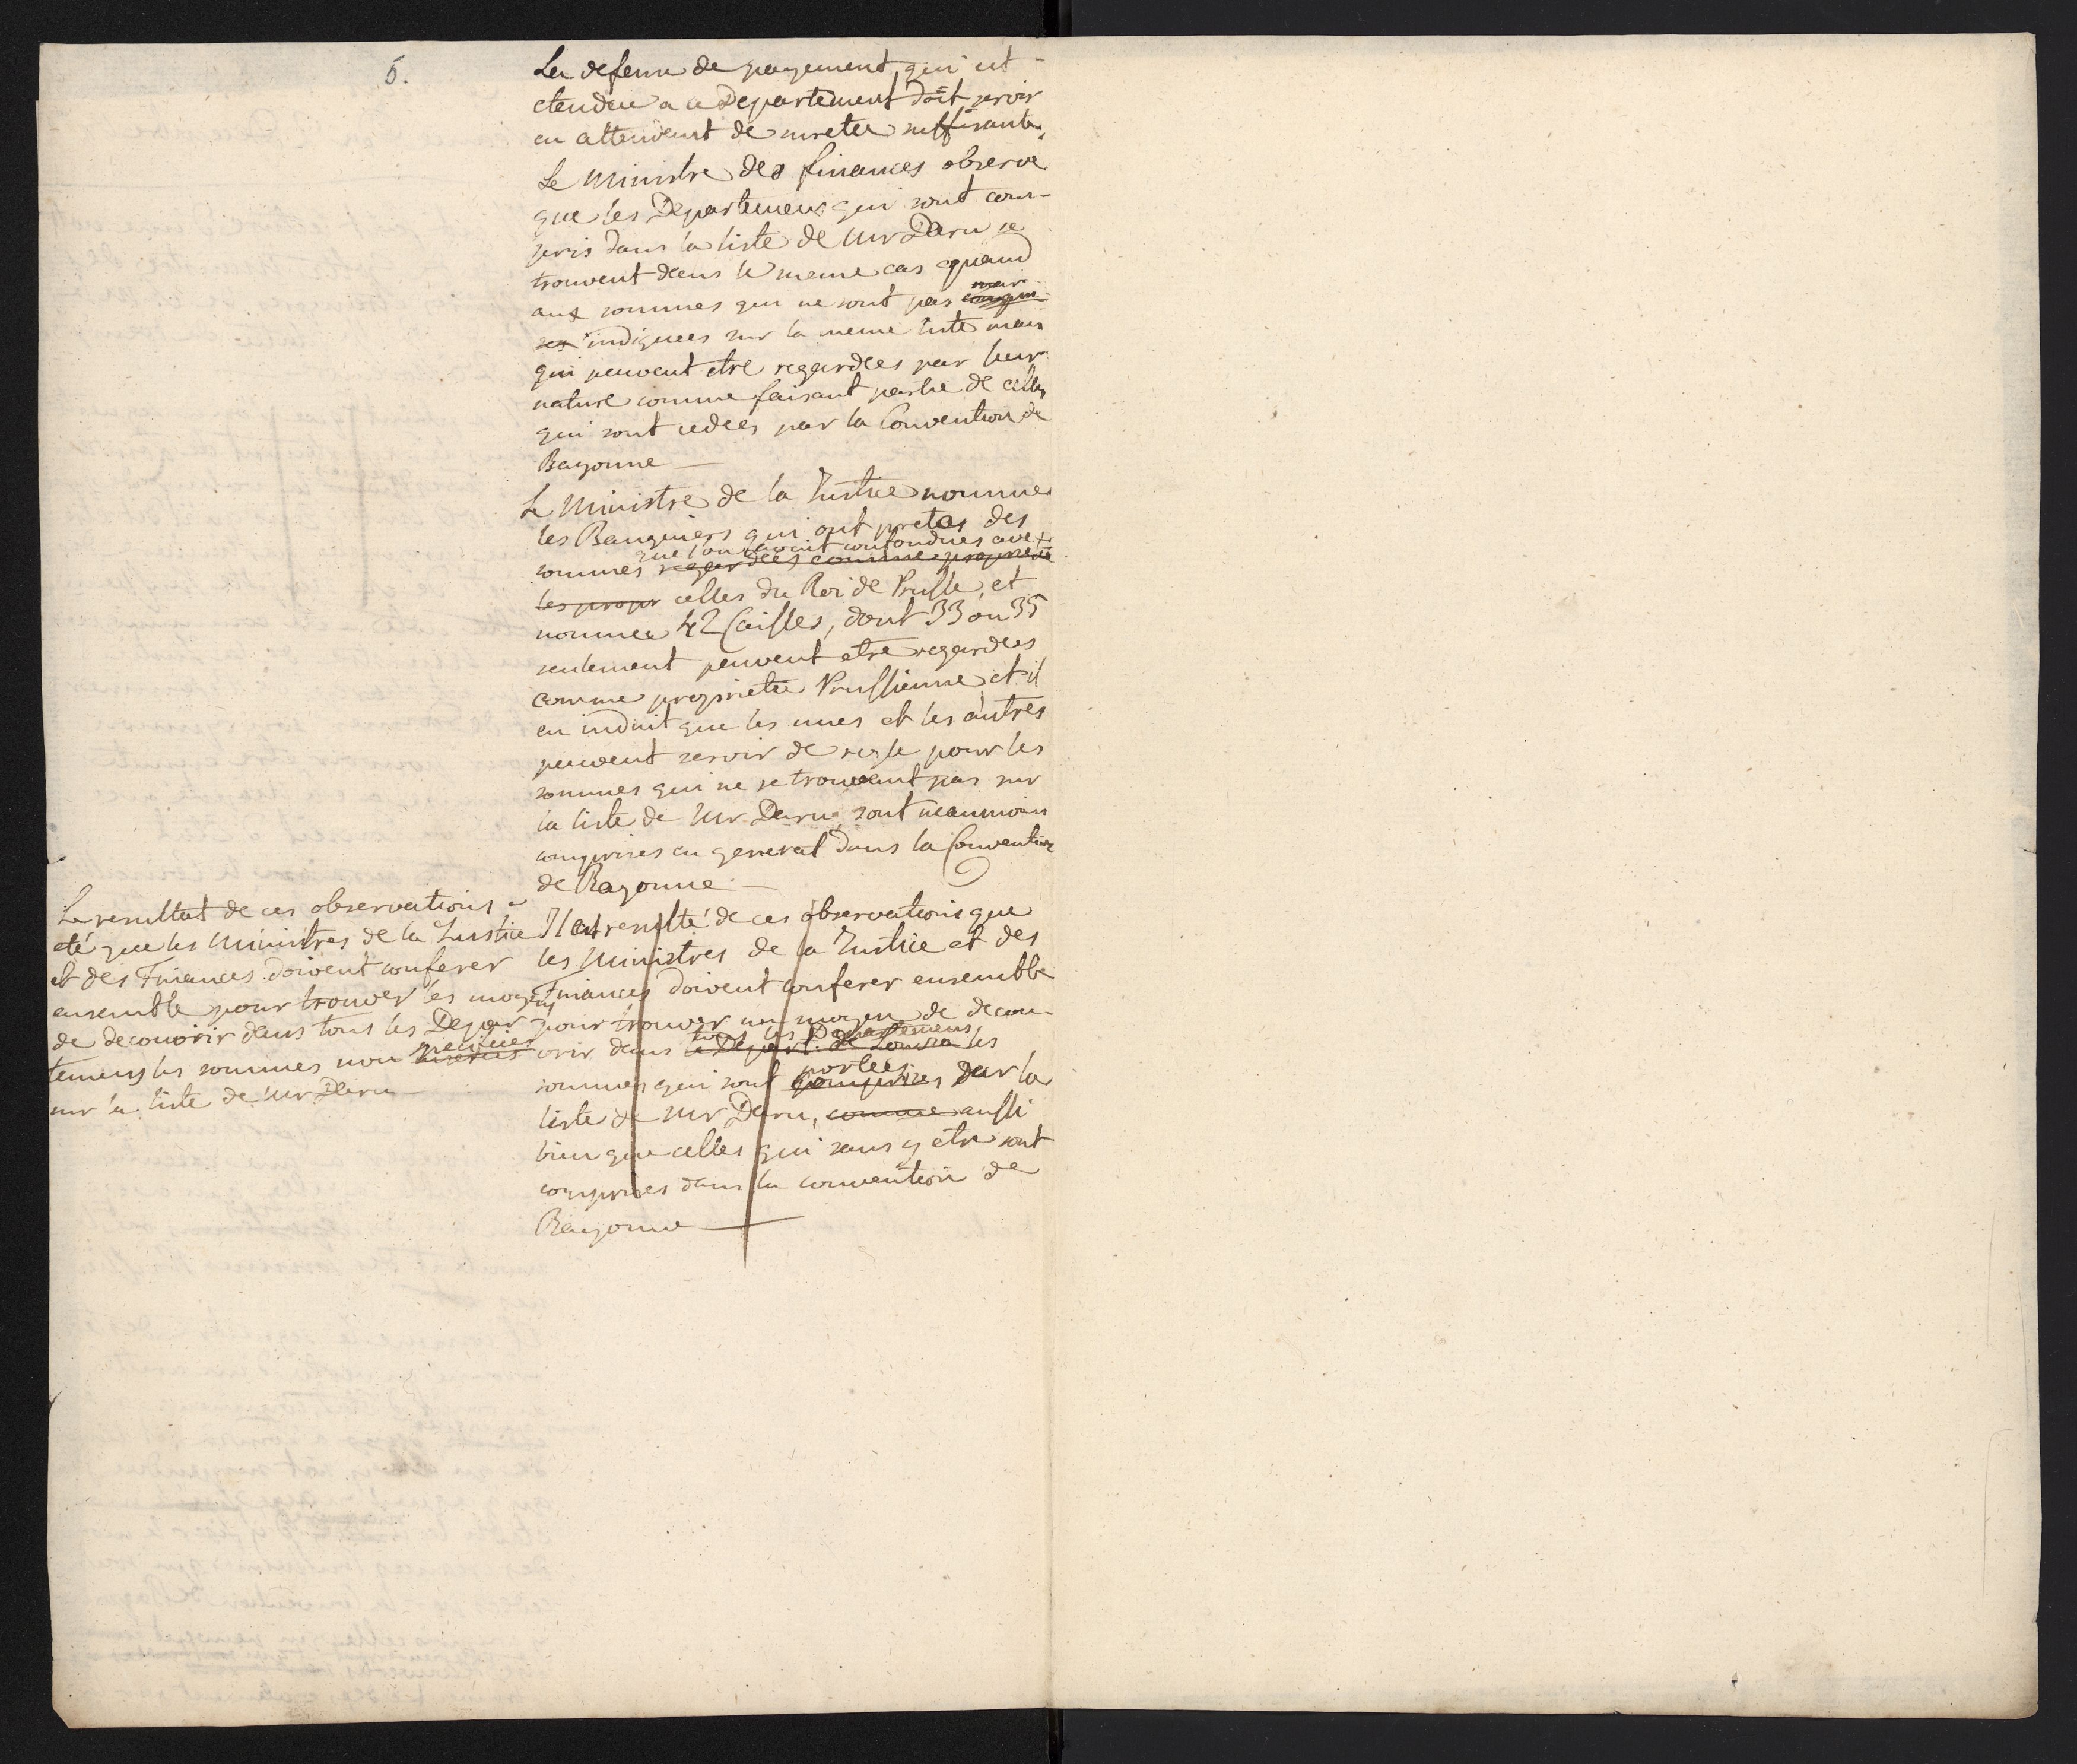 5.
La defense de payement, qui est
etendue a ce Departement doit servir
en attendant de surete suffisante.
Le Ministre des finances observe
que les Departemens qui sont com-
pris dans la liste de Mr Daru se
trouvent dans le meme cas quand
aux sommes qui ne sont pas
indiquees sur la meme liste mais
qui peuvent etre regardees par leur
nature comme faisant partie de celles
qui sont cedees par la Convention de
Bayonne —
Le Ministre de la Justice nomme
les Banquiers qui ont pretes des
que l'on avoit confondues avec
sommes regardees comme propriete
les propr celles du Roi de Prusse, et
nomma 42 Caisses, dont 33 ou 35
seulement peuvent etre regardees
comme propriete Prussienne et il
en induit que les unes et les autres
peuvent servir de regle pour les
sommes qui ne se trouvant pas sur
la liste de Mr Daru, sont neanmoins
comprises en general dans la Convention
de Bayonne —
Le resultat de ces observations a
eté que les Ministres de la Justice
et des Finances doivent conferer
ensemble pour trouver les moyens
de decouvrir dans tous les Depar-
temens les sommes non
sur la liste de Mr Daru —
Il est resulté de ces observations que
les Ministres de la Justice et des
Finances doivent conferer ensemble
pour trouver un moyen de decou-
tous les Departemens
vrir dans le Depart: de Lomza les
portées
sommes qui sont comprises sur la
liste de Mr Daru, comme aussi
bien que celles qui sans y etre sont
comprises dans la convention de
Bayonne —